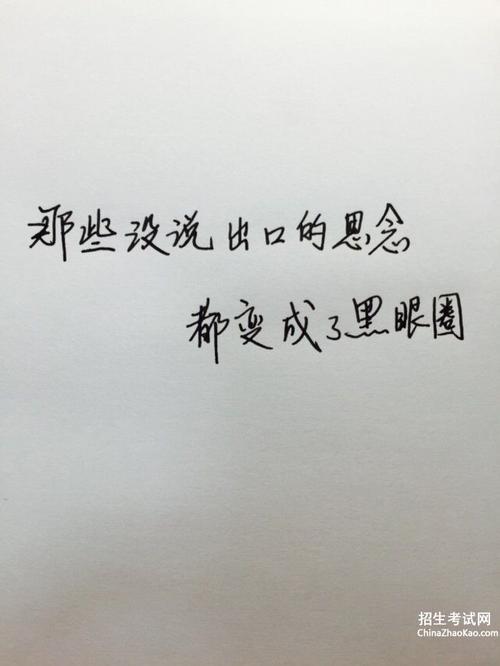 那些没说出口的思念
都变成了黑眼圈
招生考试网
ChinaZhaoKao.com